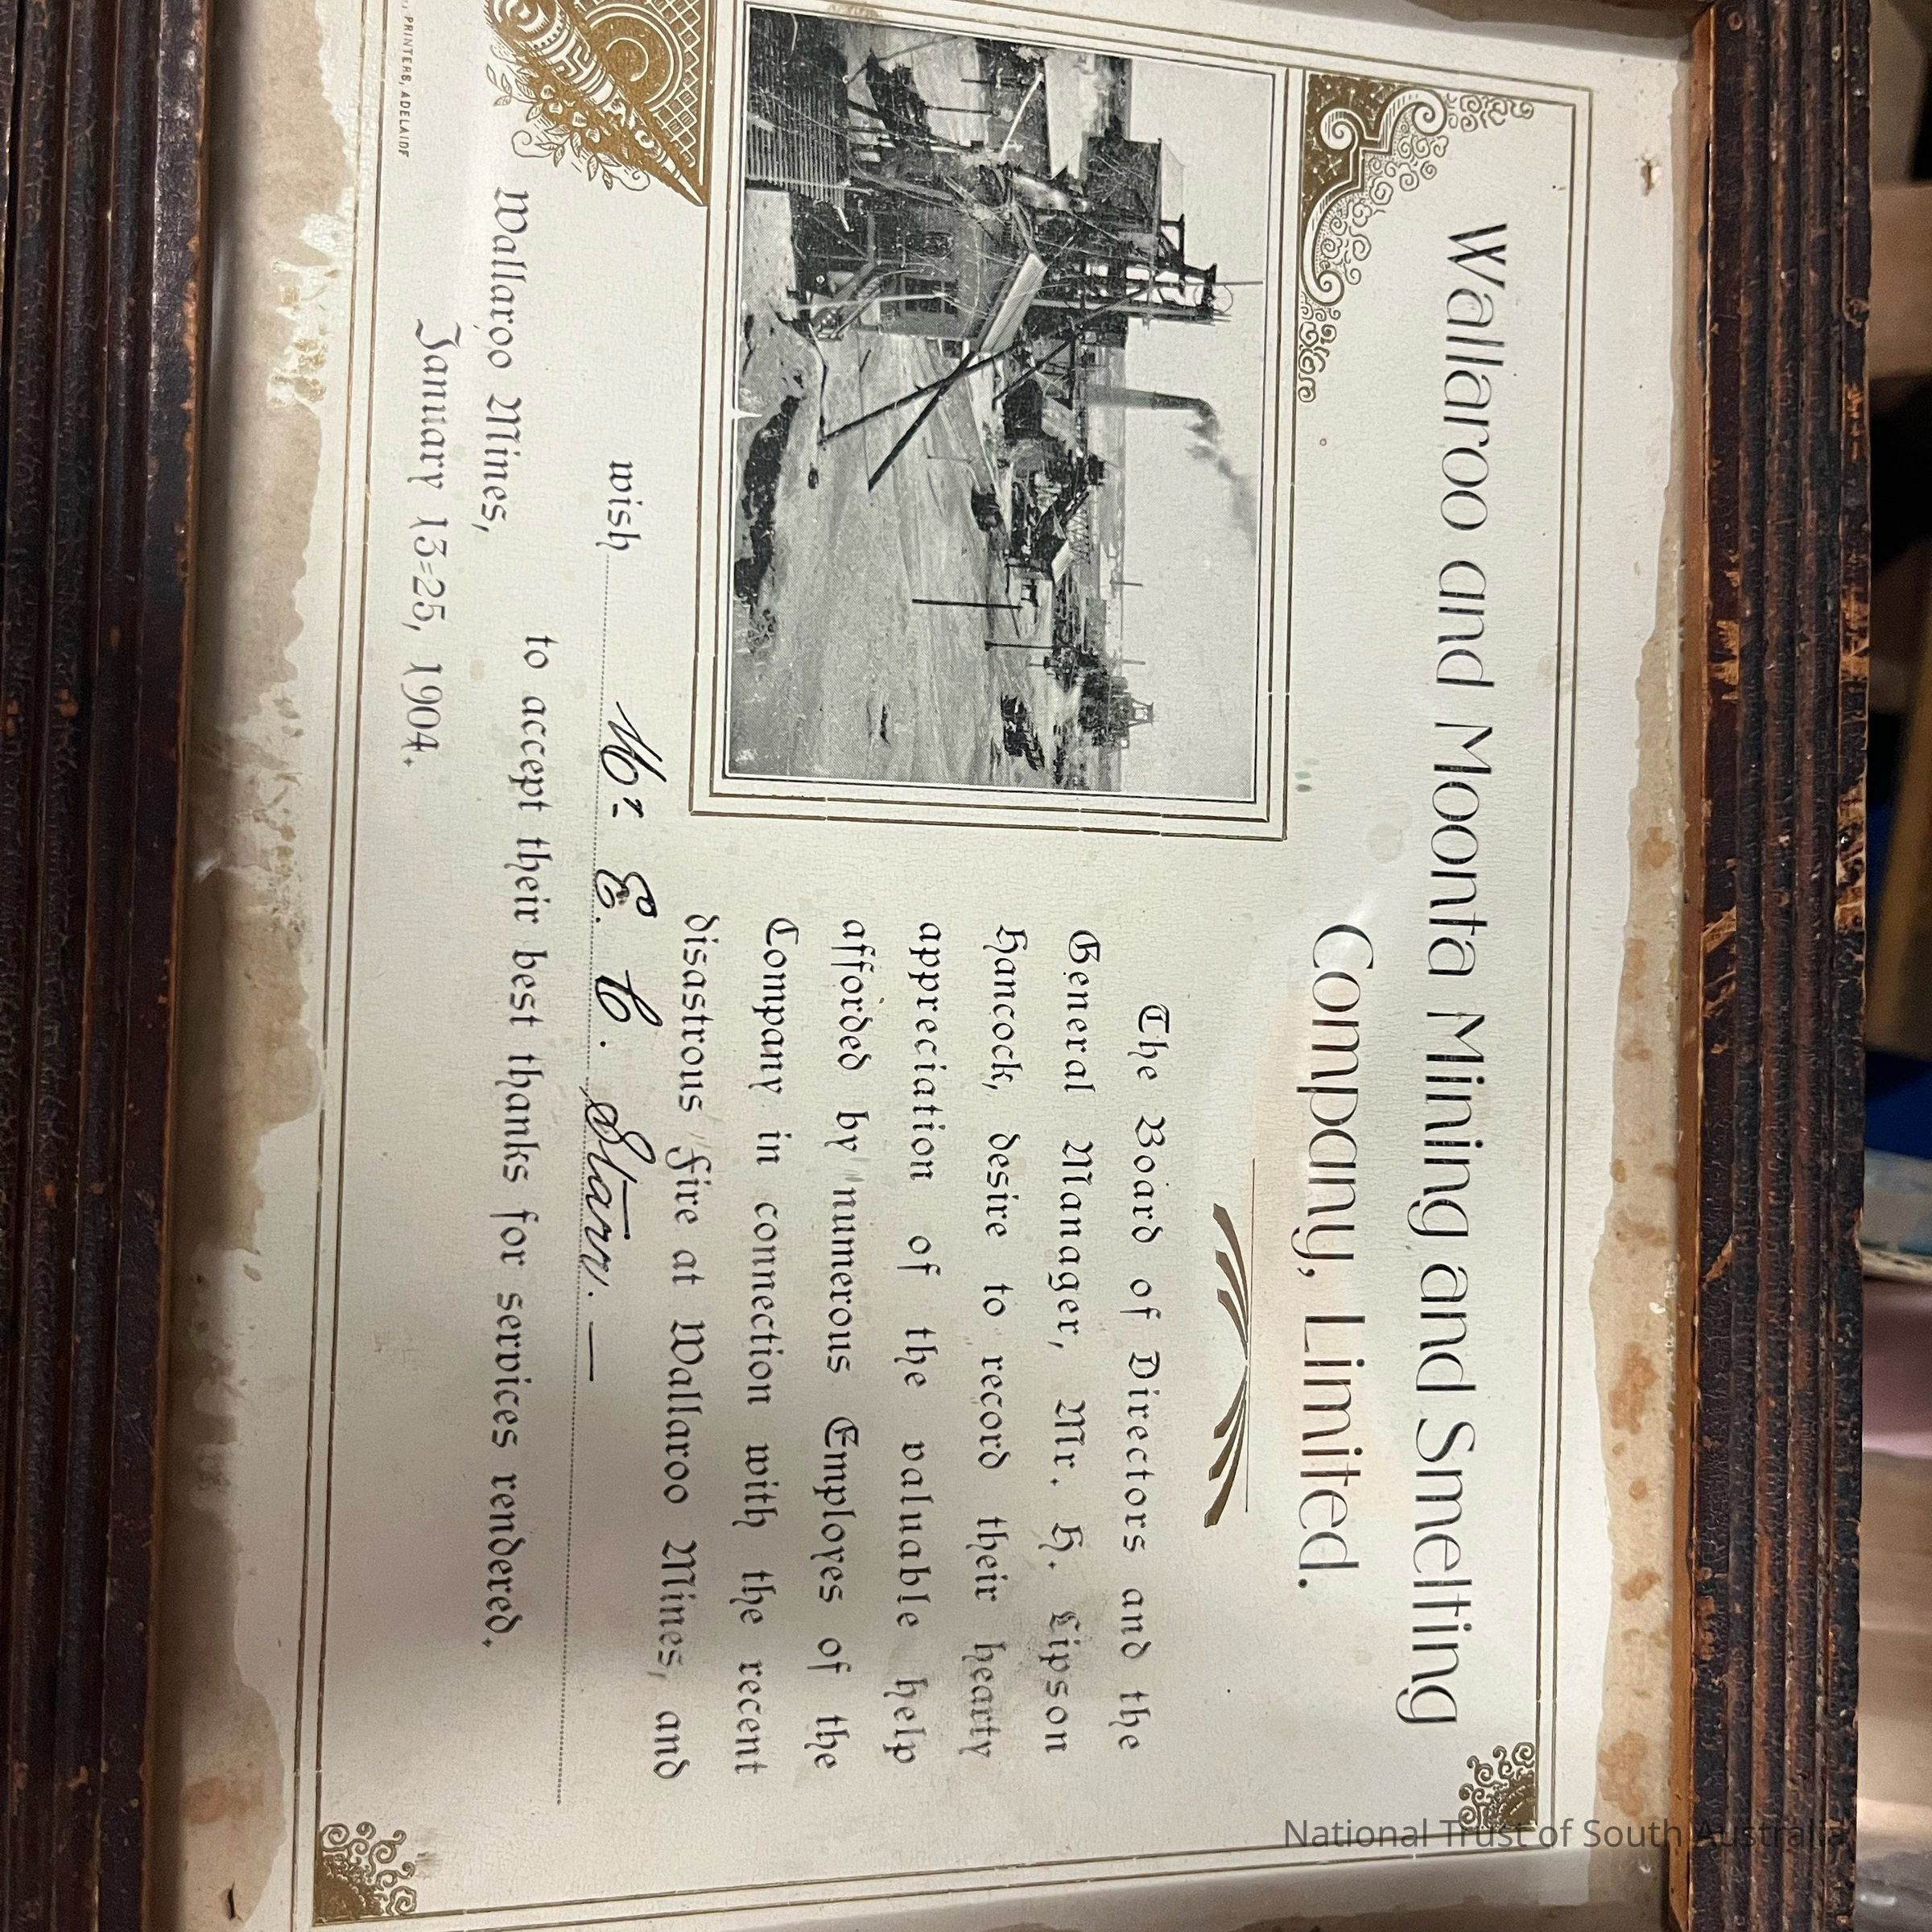 Wallaroo and Moonta Mining and Smelting
Company, Limited.
The Board of Directors and the
General Manager, Mr. H. Lipson
Hancock, desire to record their hearty
appreciation of the valuable help
afforded by numerous Employes of the
Company in connection with the recent
disastrous Fire at Wallaroo Mines, and
wish Mr. E. C. Starr. —
to accept their best thanks for services rendered.
Wallaroo Mines,
January 13=25, 1904.
, PRINTERS, ADELAIDE
National Trust of South Australia